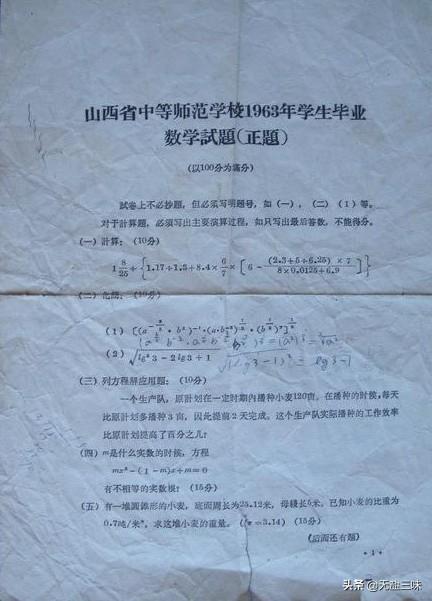 山西省中等师范学校1963年学生毕业
数学試題(正題)
(以100分为滿分)
試卷上不必抄題，但必須写明題号，如(一)，(二)(1)等。
对于計算題，必須写出主要演算过程，如只写出最后答数，不能得分。
(一)計算：(10分)
1 8/25 ÷ {1.17÷1.3+8.4× 6/7 ×[6 - (2.3+5÷6.25)×7 / 8×0.0125+6.9]}
(二)化簡：(10分)
(1)
(2) √lg²3-2lg3+1
√(lg3-1)² = lg3-1
(三)列方程解应用題：(10分)
一个生产队，原計划在一定时期內播种小麦120亩。在播种的时候，每天
比原計划多播种3亩，因此提前2天完成。这个生产队实际播种的工作效率
比原計划提高了百分之几？
(四)m是什么实数的时候，方程
mx²-(1-m)x+m=0
有不相等的实数根？(15分)
(五)有一堆圆錐形的小麦，底面周长为25.12米，母綫长5米。已知小麦的比重为
0.7吨/米³，求这堆小麦的重量。(π=3.14)(15分)
(后面还有題)
·1·
头条 @天涯三味